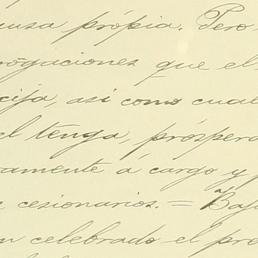 ausa própia. Pero
rogaciones que el
cija, así como cual
el tenga, próspera
ramente á cargo y
cesionarios. = Bajo
n celebrado el pre